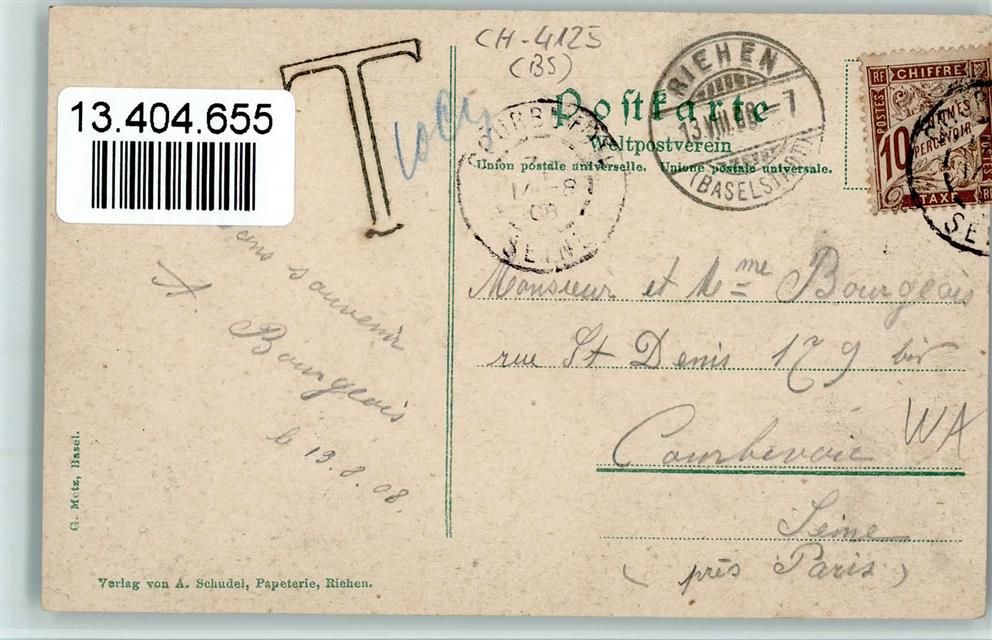 CH-4125
(BS)
13.404.655
T
RIEHEN
13.VIII.08.-7
(BASELSTADT)
Postkarte
Weltpostverein
Union postale universelle. Unione postale universale.
COURBEVOIE
14 -8
08
SEINE
RF CHIFFRE
POSTES
10
PERCEVOIR
TAXE
souvenir
A. Bourgeois
le 13.8.08.
Monsieur et Mme Bourgeois
rue St Denis 179 bis
Courbevoie
WA
Seine
(près Paris)
G. Metz, Basel.
Verlag von A. Schudel, Papeterie, Riehen.